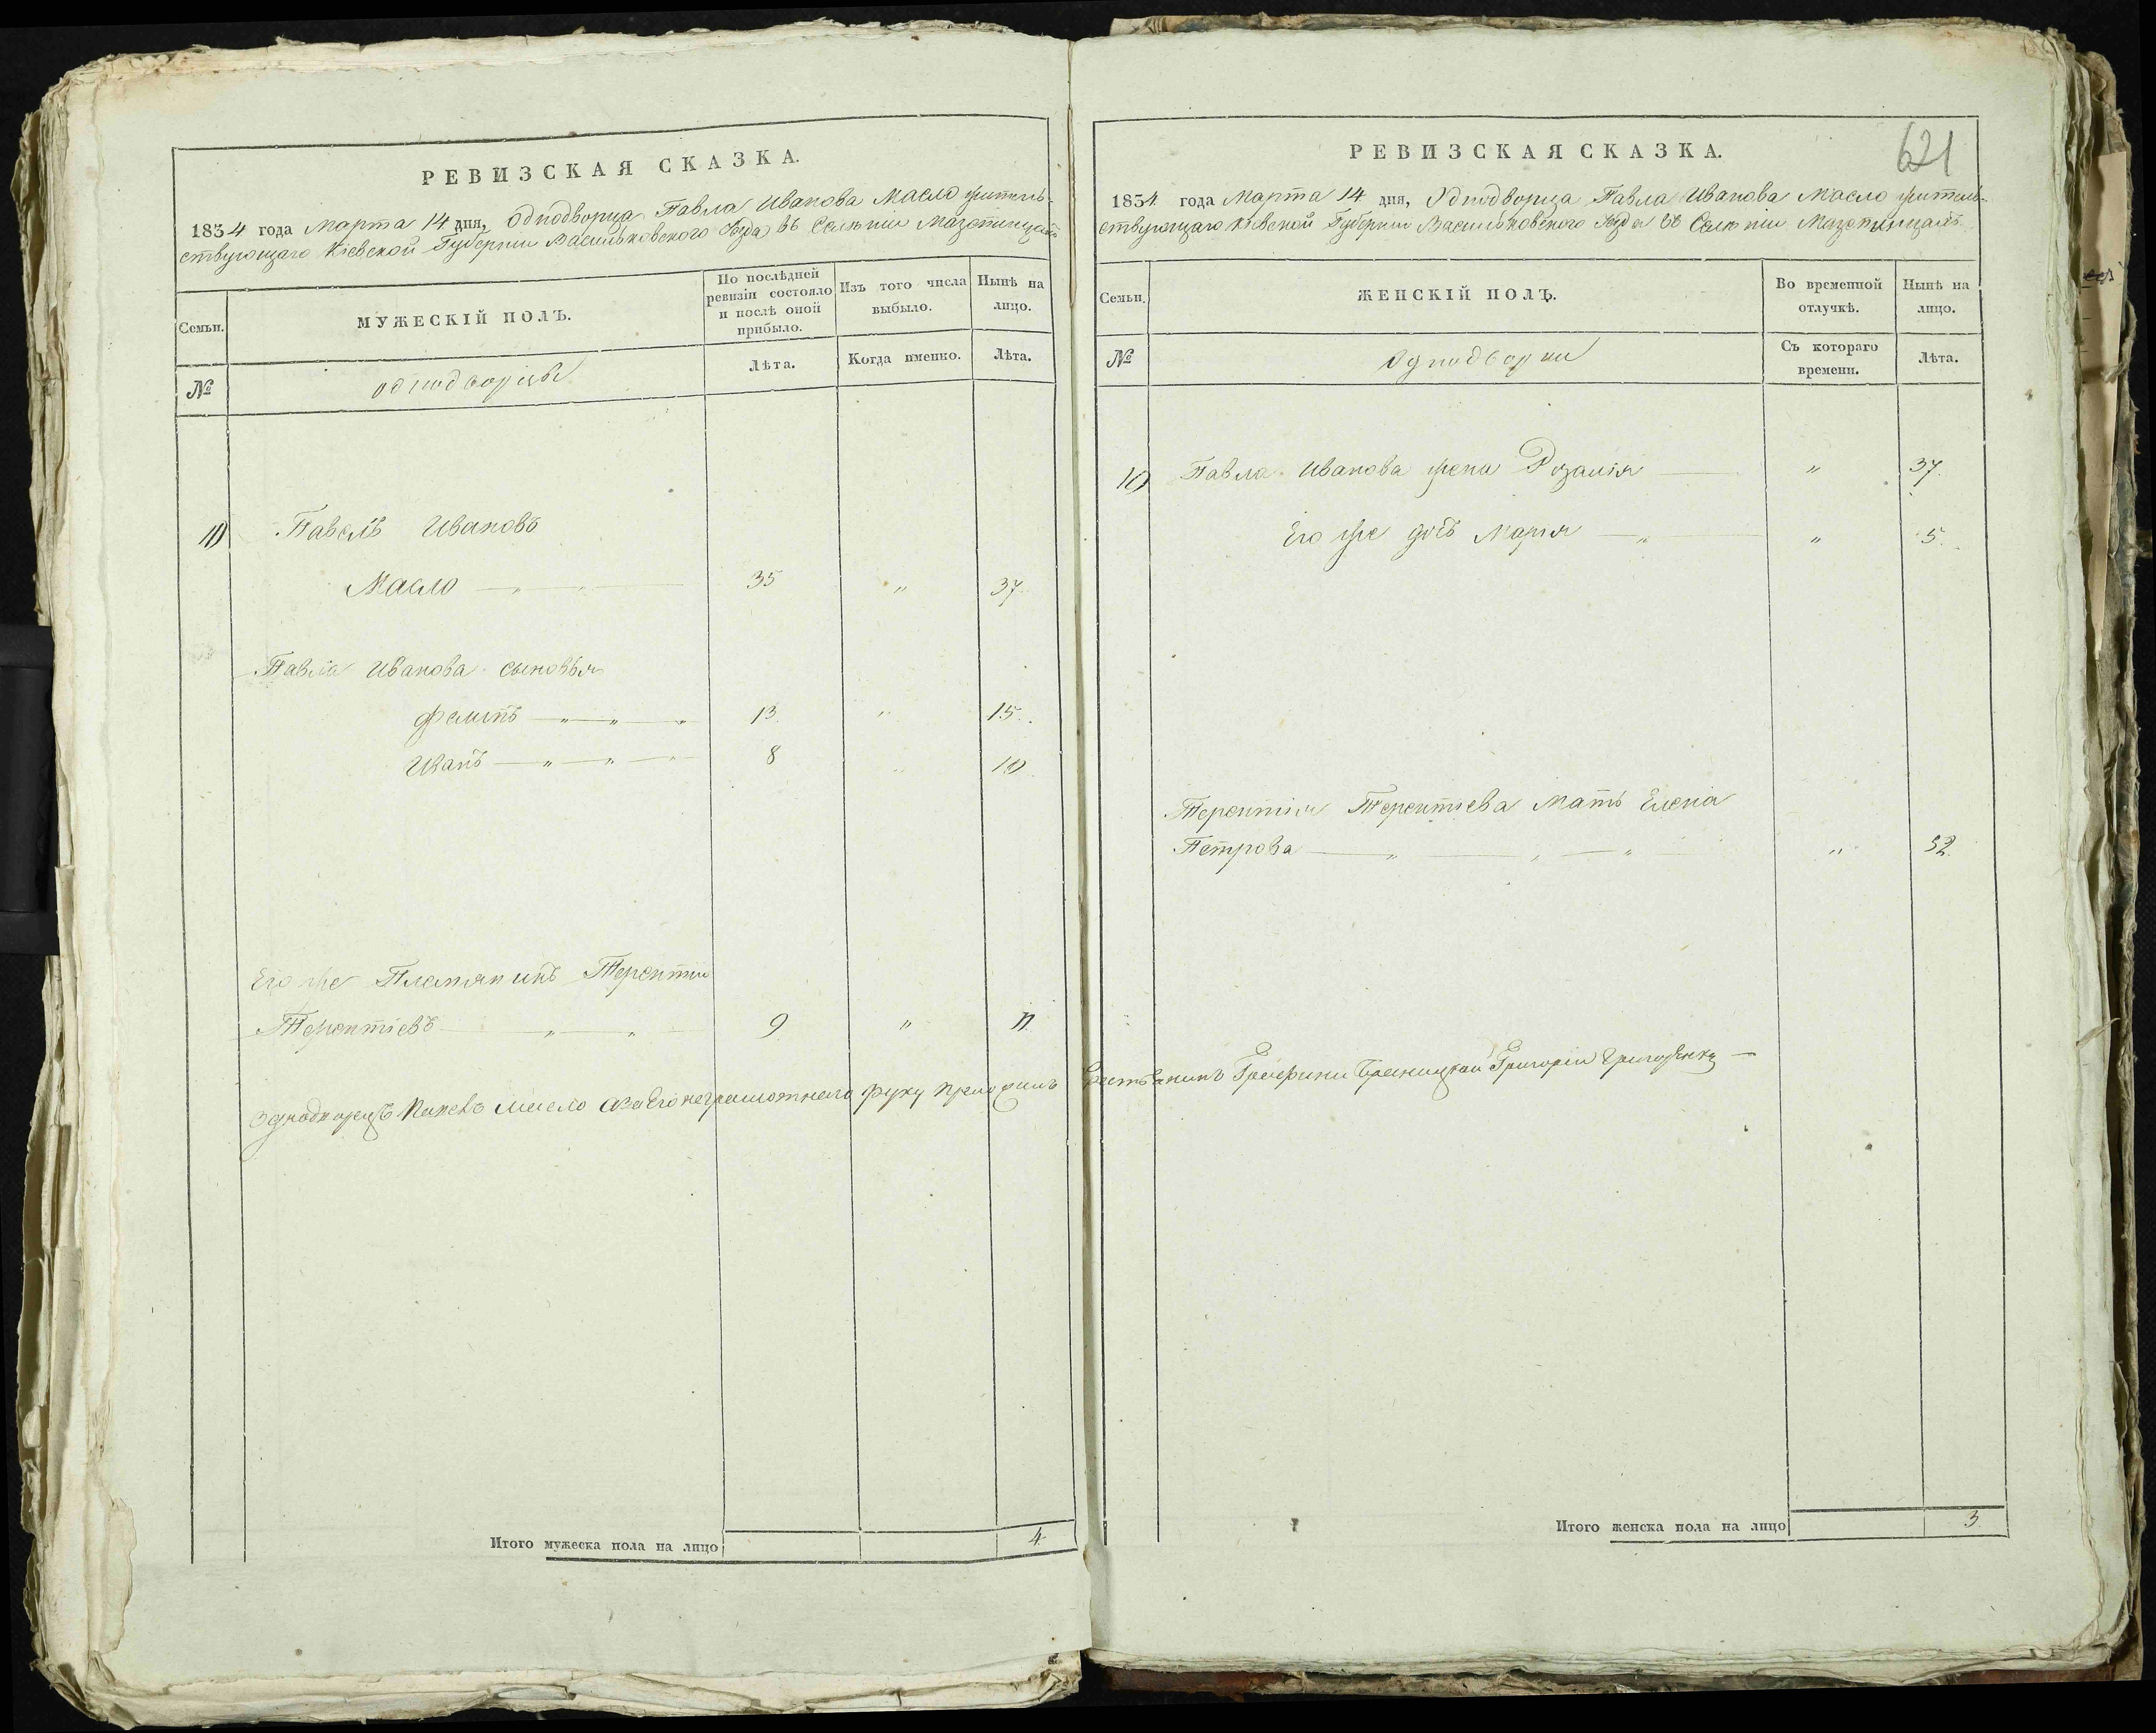 РЕВИЗСКАЯ СКАЗКА.
1834 года Марта 14 дня, Однодворца Павла Иванова Масло житель-
ствующаго Кіевской Губерніи Васильковского Уезда въ Селеніи
Семьи.
МУЖЕСКІЙ ПОЛЪ.
По послѣдней ревизіи состояло и послѣ оной прибыло.
Изъ того числа выбыло.
Нынѣ на лицо.
№
однодворцы
Лѣта.
Когда именно.
Лѣта.
10 Павелъ Ивановъ
Масло — „ — „ — 35 „ 37.
Павла Иванова сыновья
Феликъ — „ — „ — „ 13. „ 15.
Иванъ — „ — „ — „ 8 „ 10.
Его же Племянникъ Терентий
Терентіевъ — „ — „ — 9 „ 11.
Однодворецъ Павелъ Масло а за Его неграмотнаго руку приложилъ
Итого мужеска пола на лицо 4
621
РЕВИЗСКАЯ СКАЗКА.
1834 года Марта 14 дня, Однодворца Павла Иванова Масло житель-
ствующаго Кіевской Губерніи Васильковского Уезда въ Селеніи
Семьи.
ЖЕНСКІЙ ПОЛЪ.
Во временной отлучкѣ.
Нынѣ на лицо.
№
Однодворки
Съ котораго времени.
Лѣта.
10 Павла Иванова жена Розалія — „ 37.
Его же дочь Марія — „ — „ 5.
Терентія Терентіева Мать Елена
Петрова — „ — „ — „ „ 52.
крестьянинъ Графини Браницкой Григорій Григоренко —
Итого женска пола на лицо 3